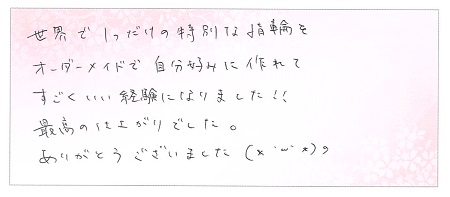 世界で1つだけの特別な指輪を
オーダーメイドで自分好みに作れて
すごくいい経験になりました!!
最高の仕上がりでした。
ありがとうございました(*˙ω˙*)و